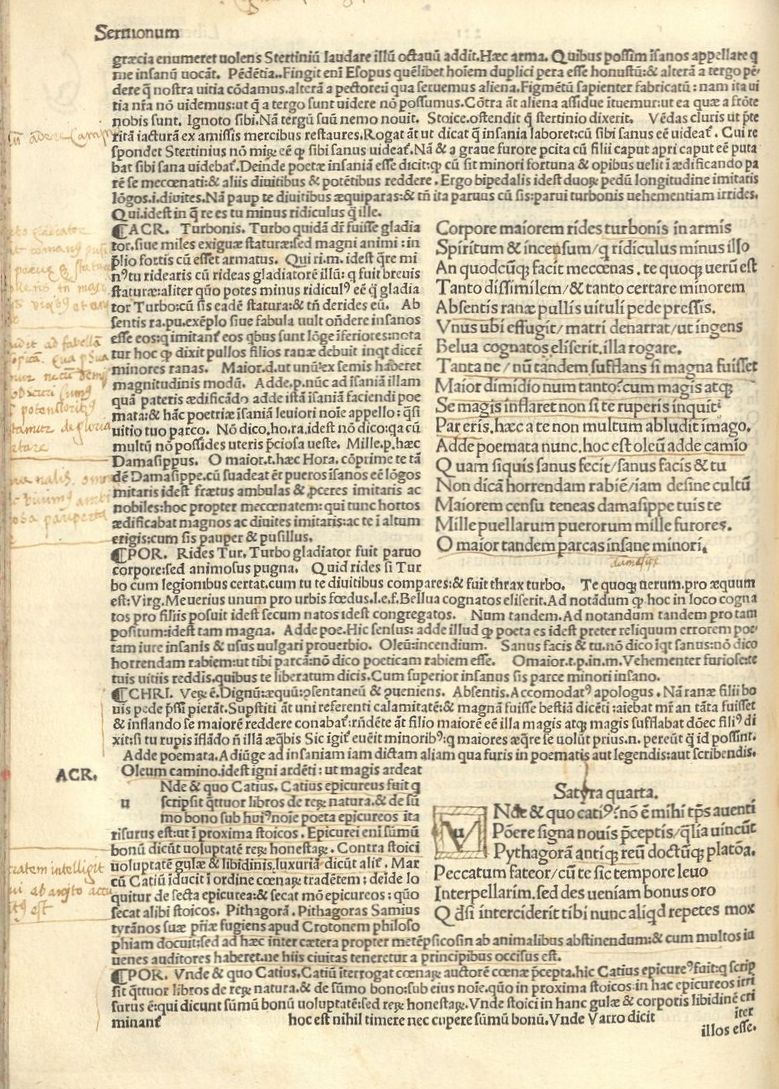 Sermonum
græcia enumeret uolens Stertiniũ laudare illũ octauũ addit. Hæc arma. Quibus possim ĩsanos appellare q
me insanũ uocãt. Pẽdẽtia.. Fingit eni Esopus quẽlibet hoĩem duplici pera esse honustũ: & alterã a tergo pẽ⸗
dere q̃ nostra uitia cõdamus. alterã a pectore: ĩ qua seruemus aliena. Figmẽtũ sapienter fabricatũ: nam ita ui
tia nr̃a nõ uidemus: ut q̃ a tergo sunt uidere nõ possumus. Cõtra ãt aliena assidue ĩtuemur: ut ea quæ a frõte
nobis sunt. Ignoto sibi. Nã tergũ suũ nemo nouit. Stoice. ostendit q̃ stertinio dixerit. Vẽdas cluris ut p̃te
ritã iacturã ex amissis mercibus restaures. Rogat ãt ut dicat q̃ insania laboret: cũ sibi sanus eẽ uideat᷑. Cui re
spondet Stertinius nõ miꝝ eẽ ꝙ sibi sanus uideat᷑. Nã & a graue furore pcita cũ filii caput apri caput eẽ puta
bat sibi sana uidebat᷑. Deinde poetæ insaniã esse dicit: ꝙ cũ sit minori fortuna & opibus uelit ĩ ædificando pa
rẽ se mecœnati: & aliis diuitibus & potẽtibus reddere. Ergo bipedalis idest duoꝝ pedũ longitudine imitatis
lõgos. i. diuites. Nã paup te diuitibus æquiparas: & tñ ita paruus cũ sis: parui turbonis uehementiam irrides.
Qui. idest in q̃ re es tu minus ridiculus q̃ ille.
¶ACR. Turbonis. Turbo quidã dr̃ fuisse gladia
tor. siue miles exiguæ staturæ: sed magni animi: in
plio fortis cũ esset armatus. Qui ri. m. idest q̃re mi
nꝰ tu ridearis cũ rideas gladiatorẽ illũ: q fuit breuis
staturæ: aliter quõ potes minus ridiculꝰ eẽ q̃ gladia
tor Turbo: cũ sis eadẽ statura: & tñ derides eũ. Ab
sentis ra. pu. exẽplo siue fabula uult oñdere insanos
esse eos: q imitant᷑ eos qbus sunt lõge ĩferiores: nota
tur hoc ꝙ dixit pullos filios ranæ debuit inqt dicer̃
minores ranas. Maior. d. ut unũ: ex semis haberet
magnitudinis modũ. Adde. p. nũc ad ĩsaniã illam
quã pateris ædificãdo adde istã ĩsaniã faciendi poe
mata: & hãc poetriæ ĩsaniã leuiori noĩe appello: qsi
uitio tuo parco. Nõ dico. ho. ra. idest nõ dico: qa cũ
multũ nõ possides uteris p̃ciosa ueste. Mille. p. hæc
Damasippus. O maior. t. hæc Hora. cõprime te tã
dẽ Damasippe. cũ suadeat ẽt pueros ĩsanos eẽ lõgos
imitaris idest frætus ambulas & pceres imitaris ac
nobiles: hoc propter mecœnatem: qui tunc hortos
ædificabat magnos ac diuites imitaris: ac te ĩ altum
erigis: cum sis pauper & pusillus.
¶POR. Rides Tur. Turbo gladiator fuit paruo
corpore: sed animosus pugna. Quid rides si Tur
Corpore maiorem rides turbonis in armis
Spiritum & incensum/ q ridiculus minus illo
An quodcũqꝫ facit mecœnas. te quoqꝫ uerũ est
Tanto dissimilem/ & tanto certare minorem
Absentis ranæ pullis uituli pede pressis.
Vnus ubi effugit/ matri denarrat/ ut ingens
Belua cognatos eliserit. illa rogare.
Tanta ne/ nũ tandem sufflans si magna fuisset
Maior dimidio num tanto? cum magis atqꝫ
Se magis inflaret non si te ruperis inquit:
Par eris, hæc a te non multum abludit imago.
Adde poemata nunc. hoc est oleũ adde camĩo
Quam siquis sanus fecit/ sanus facis & tu
Non dicã horrendam rabiẽ/ iam desine cultũ
Maiorem censu teneas damasippe tuis te
Mille puellarum puerorum mille furores.
O maior tandem parcas insane minori.
bo cum legionibus certat. cum tu te diuitibus compares: & fuit thrax turbo. Te quoqꝫ uerum. pro æquum
est: Virg. Meuerius unum pro urbis fœdus. l. e. f. Bellua cognatos eliserit. Ad notãdum ꝙ hoc in loco cogna
tos pro filiis posuit idest secum natos idest congregatos. Num tandem. Ad notandum tandem pro tam
positum: idest tam magna. Adde poe. Hic sensus: adde illud ꝙ poeta es idest preter reliquum errorem poe⸗
tam iure insanis & usus uulgari prouerbio. Oleũ: incendium. Sanus facis & tu. nõ dico iqt sanus: nõ dico
horrendam rabiem: ut tibi parcã: nõ dico poeticam rabiem esse. O maior. t. p. in m. Vehementer furiose: te
tuis uitiis reddis. quibus te liberatum dicis. Cum superior insanus sis parce minori insano.
¶CHRI. Veꝝ ẽ. Dignũ: æquũ: psentaneũ & pueniens. Absentis. Accomodatꝰ apologus. Nã ranæ filii bo
uis pede p̃ssi pierãt. Supstiti ãt uni referenti calamitatẽ: & magnã fuisse bestiã dicẽti: aiebat mr̃ an tãta fuisset
& inflando se maiorẽ reddere conabat᷑: rñdẽte ãt filio maiorẽ eẽ illa magis atqꝫ magis sufflabat dõec filiꝰ di
xit: si tu rupis ĩflãdo ñ illã æq̃bis Sic igit᷑ euẽit minoribꝰ: q maiores æq̃re se uolũt prius. n. pereũt q̃ id possint.
Adde poemata. Adiũge ad insaniam iam dictam aliam qua furis in poematis aut legendis: aut scribendis.
ACR.
Oleum camino. idest igni ardẽti: ut magis ardeat
Nde & quo Catius. Catius epicureus fuit q
u scripsit q̃ttuor libros de reꝝ natura. & de sũ
mo bono sub huiꝰ noĩe poeta epicureos ita
rĩsurus est: ut ĩ proxima stoicos. Epicurei eni sũmũ
bonũ dicũt uoluptatẽ reꝝ honestaꝝ. Contra stoici
uoluptatẽ gulæ & libidinis. luxuriã dicũt alit᷑. Mar
cũ Catiũ iducit ĩ ordine cœnaꝝ tradẽtem: deide lo
quitur de secta epicurea: & secat mõ epicureos: quo
secat alibi stoicos. Pithagorã. Pithagoras Samius
tyrãnos suæ pr̃iæ fugiens apud Crotonem philoso
Satyra quarta.
VNde & quo cati? nõ ẽ mihi tp̃s auenti
Põere signa nouis p̃ceptis/ q̃lia uincũt
Pythagorã antiqꝫ reũ doctũqꝫ platõa.
Peccatum fateor/ cũ te sic tempore leuo
Interpellarim. sed des ueniam bonus oro
Q dsi interciderit tibi nunc aliqd repetes mox
phiam docuit: sed ad hæc inter cætera propter metẽpsicosin ab animalibus abstinendum: & cum multos iu
uenes auditores haberet. ne hiis ciuitas teneretur a principibus occisus est.
¶POR. Vnde & quo Catius. Catiũ iterrogat cœnaꝝ auctorẽ cœnæ p̃cepta. hic Catius epicureꝰ fuit: q scrip
sit q̃ttuor libros de reꝝ natura. & de sũmo bono: sub eius noĩe. quo in proxima stoicos: in hac epicureos irri
surus ẽ: qui dicunt sũmũ bonũ uoluptatẽ: sed reꝝ honestaꝝ. Vnde stoici in hanc gulæ & corporis libidinẽ cri
minant᷑ hoc est nihil timere nec cupere sũmũ bonũ. Vnde Varro dicit iter
illos esse.